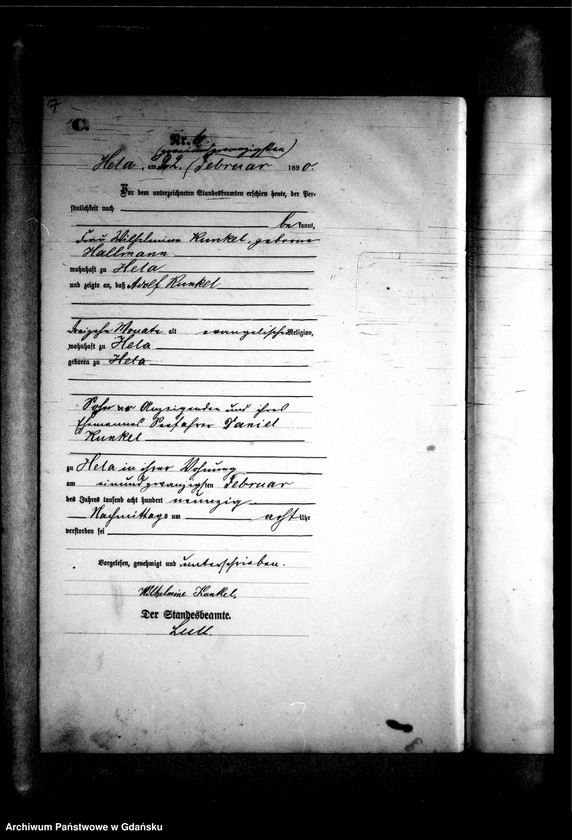 7
C.
Nr. 6.
(zweiundzwanzigsten)
Hela, am 22. Februar 1890.
Vor dem unterzeichneten Standesbeamten erschien heute, der Per-
sönlichkeit nach
be kannt,
Frau Wilhelmine Kunkel, geborne
Hallmann
wohnhaft zu Hela
und zeigte an, daß Adolf Kunkel
dreizehn Monate alt evangelischer Religion,
wohnhaft zu Hela
geboren zu Hela
Sohn der Anzeigenden und ihres
Ehemannes Seefahrer Daniel
Kunkel
zu Hela in ihrer Wohnung
am einundzwanzigsten Februar
des Jahres tausend acht hundert neunzig
Nachmittags um acht Uhr
verstorben sei
Vorgelesen, genehmigt und unterschrieben.
Wilhelmine Kunkel.
Der Standesbeamte.
Archiwum Państwowe w Gdańsku